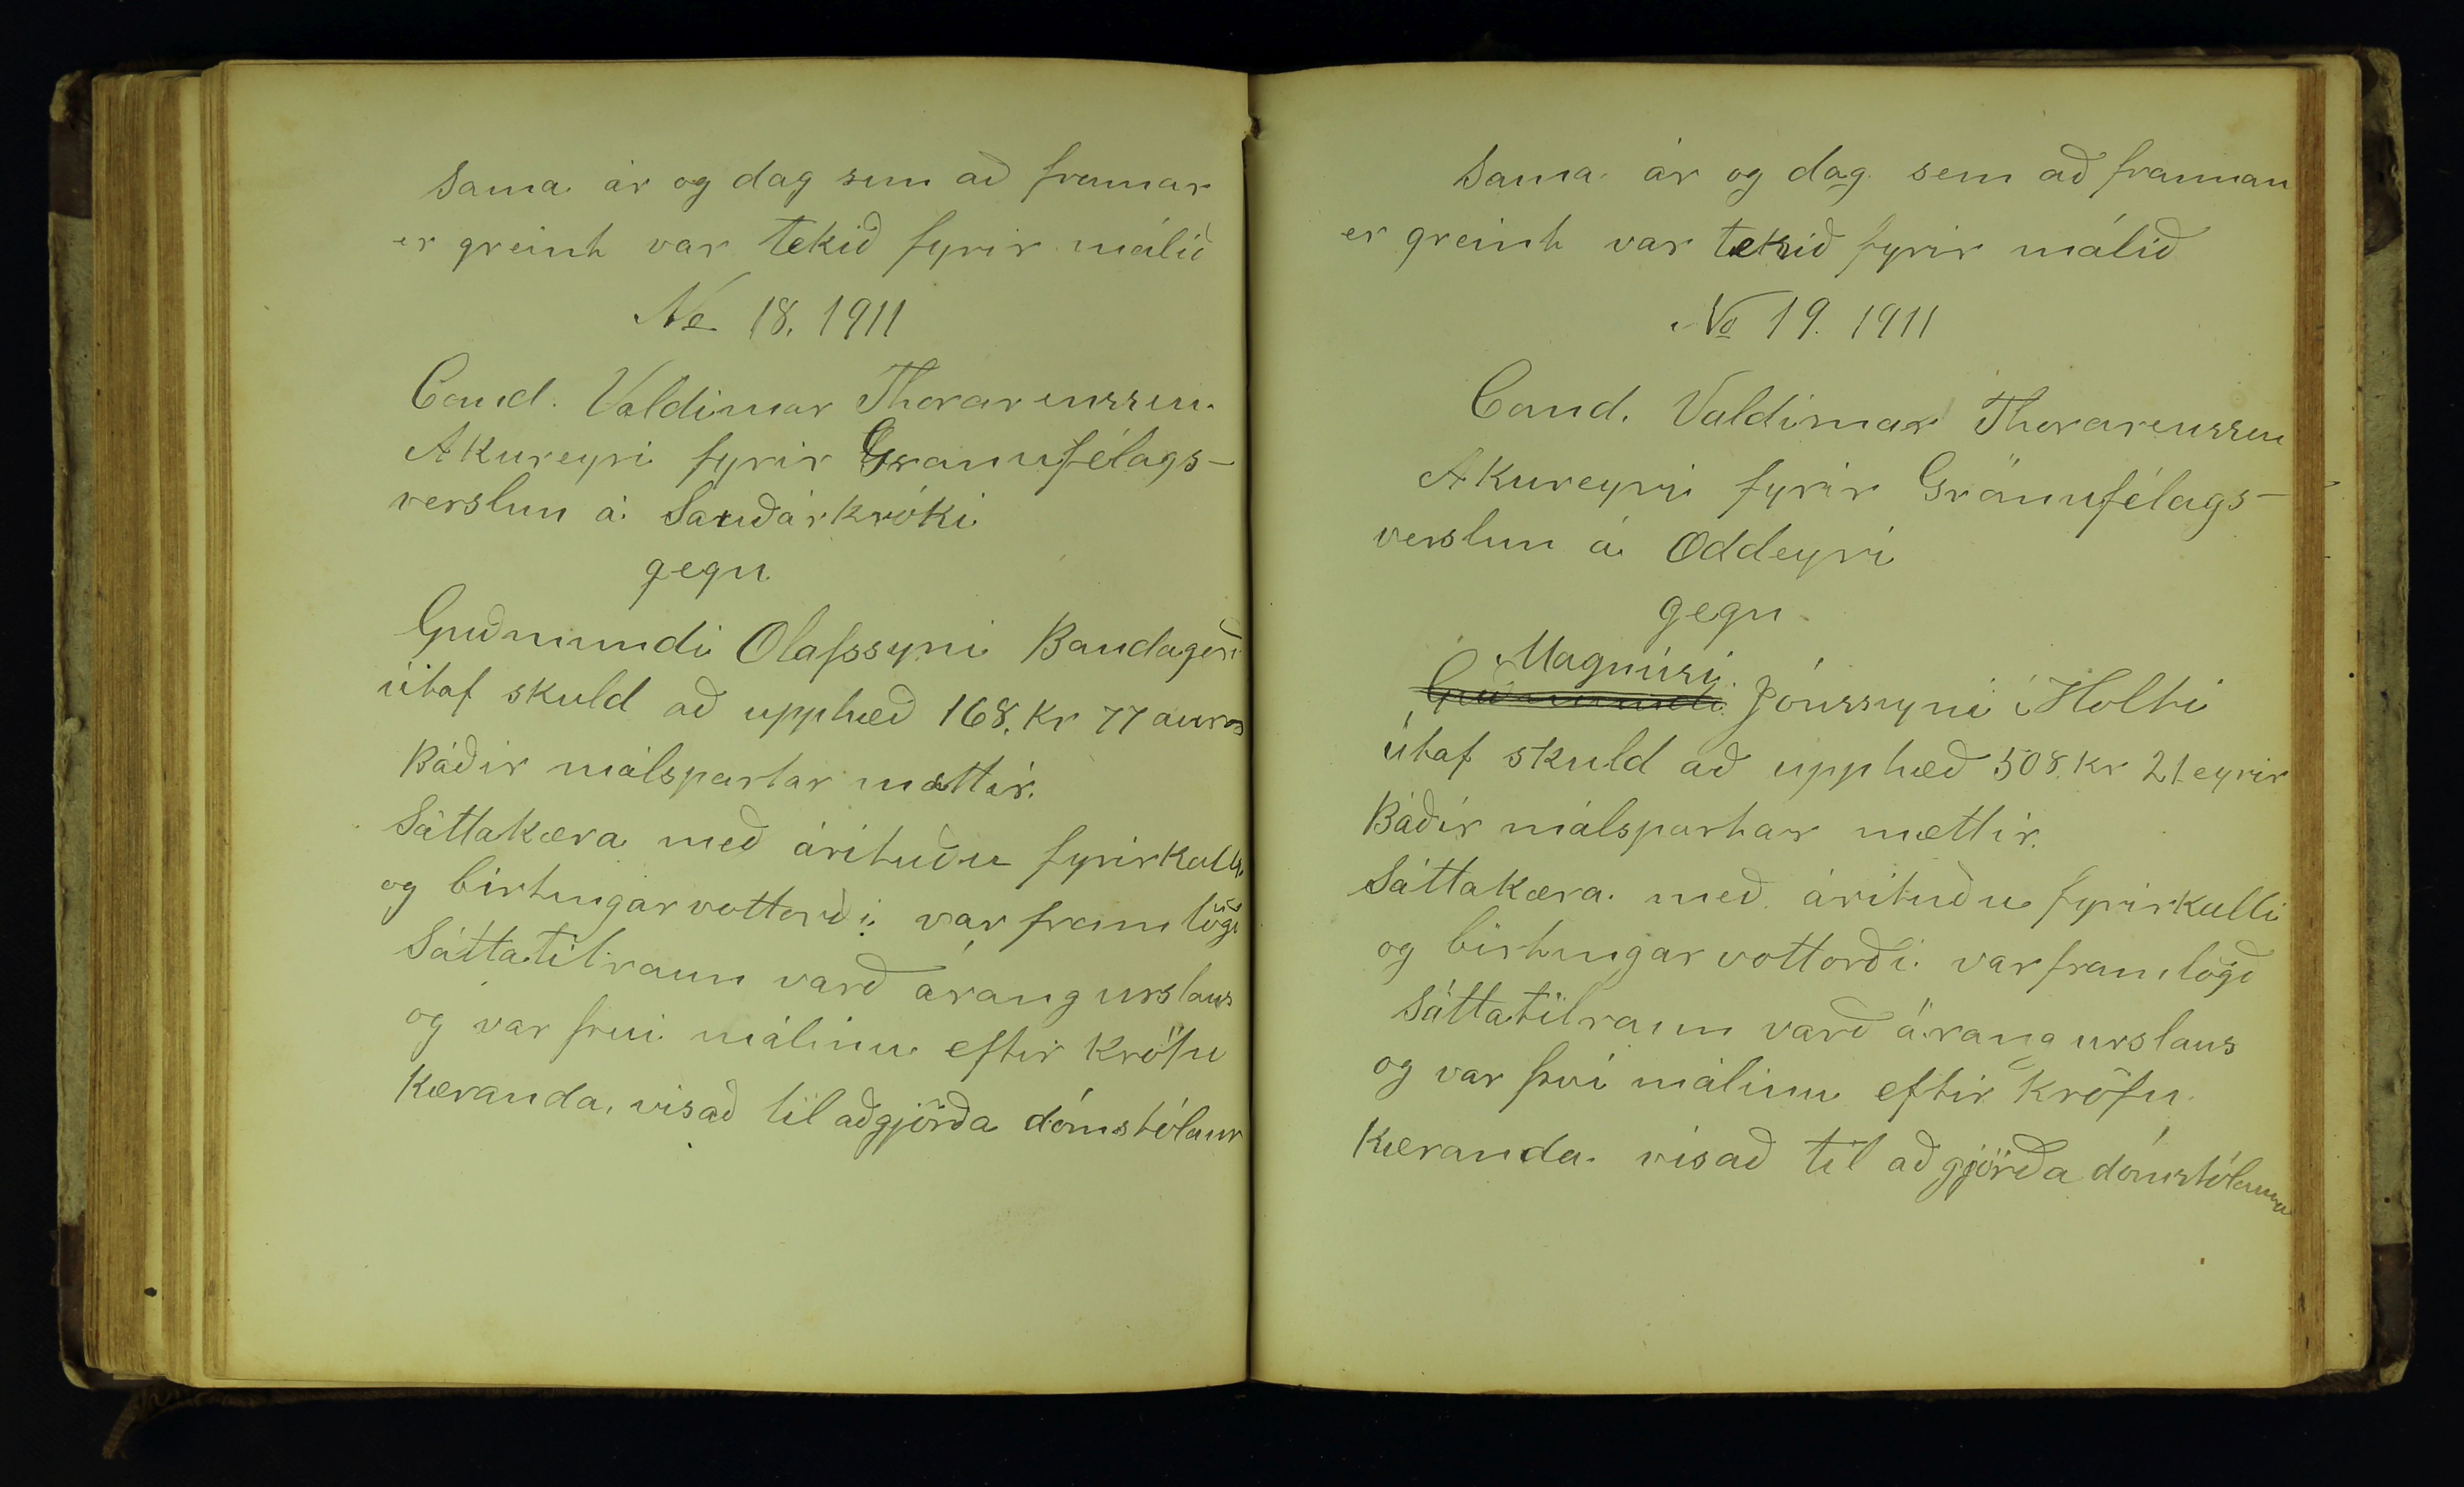 Sama ár og dag sem að framar
er greint var tekið fyrir málið
No 18. 1911
Cand. Valdimar Thorarenssen
Akureyri fyrir Gránufélags-
verslun á Sauðárkróki
gegn
Guðmundi Olafssyni Bandagerði
útaf skuld að upphæð 168. kr 77 aura
Báðir málspartar mættir.
Sáttakæra með árituðu fyrirkalli
og birtingarvottorði var framlögð
Sáttatilraun varð árangurslaus
og var því málinu eftir kröfu
kæranda, visað til aðgjörða dómstólanna
Sama ár og dag sem að framan
er greint var tekið fyrir málið
No 19. 1911
Cand. Valdimar Thorarenssen
Akureyri fyrir Gránufélags-
verslun á Oddeyri
gegn
Magnúsi
Guðmundi Jónssyni í Holti
útaf skuld að upphæð 508. kr 21 eyrir
Báðir málspartar mættir.
Sáttakæra með árituðu fyrirkalli
og birtingarvottorði var framlögð
Sáttatilraun varð árangurslaus
og var því málinu eftir kröfu
kæranda visað til aðgjörða dómstólanna